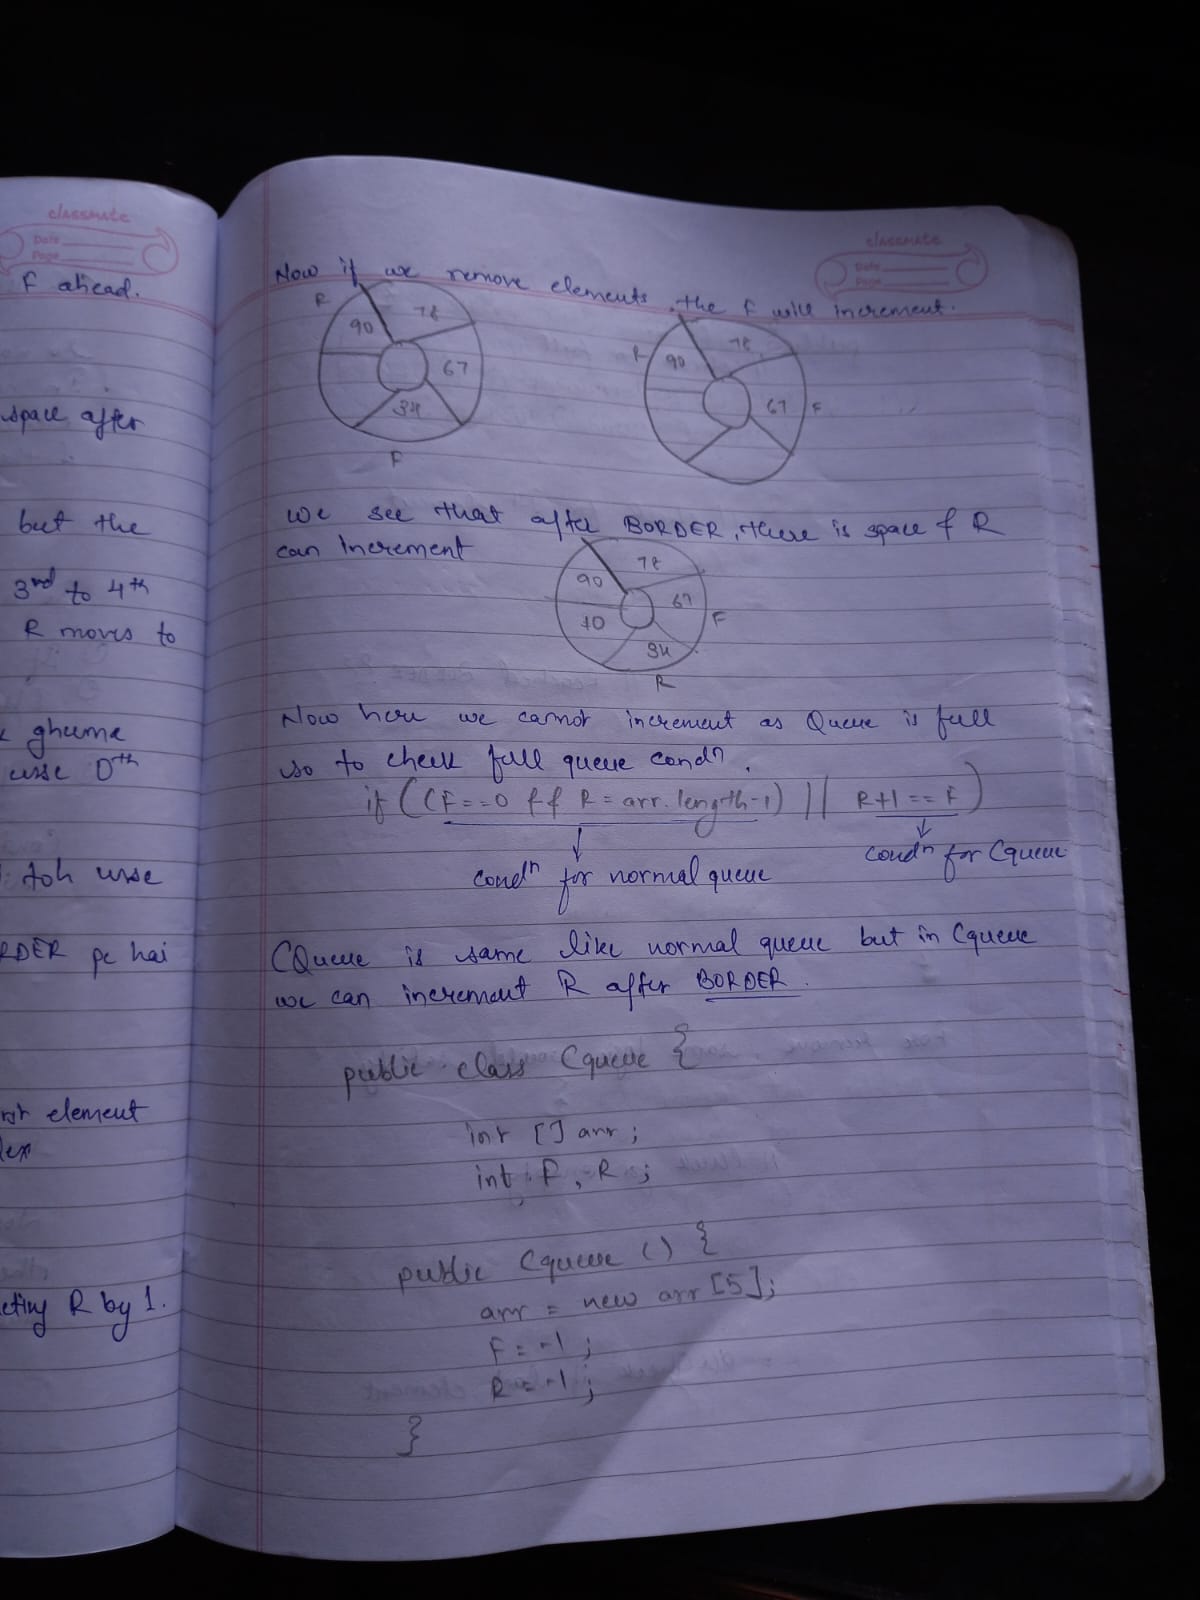 classmate
Date
Page
F ahead.
space after
but the
3rd to 4th
R moves to
ghume
usse 0th
toh usse
RDER pe hai
element
R by 1.
classmate
Date
Page
Now if we remove elements, the F will increment.
R
90
78
67
34
F
R
90
78
67
F
We see that after BORDER, there is space & R
can Increment
90
78
67
F
10
34
R
Now here we cannot increment as Queue is full
so to check full queue condn.
if ((F==0 && R = arr.length-1) || R+1 == F)
condn for normal queue
condn for Cqueue
CQueue is same like normal queue but in Cqueue
we can increment R after BORDER.
public class Cqueue {
int [] arr;
int F, R;
public Cqueue () {
arr = new arr [5];
F = -1;
R = -1;
}